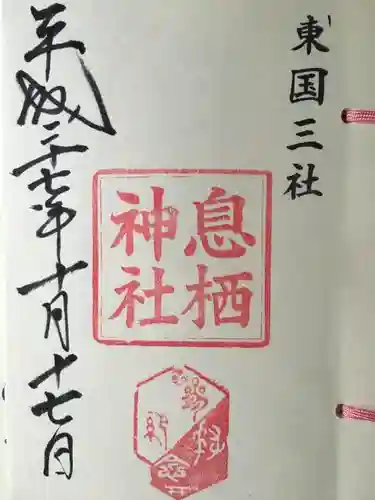 東国三社
息栖
神社
平成二十七年十月十七日